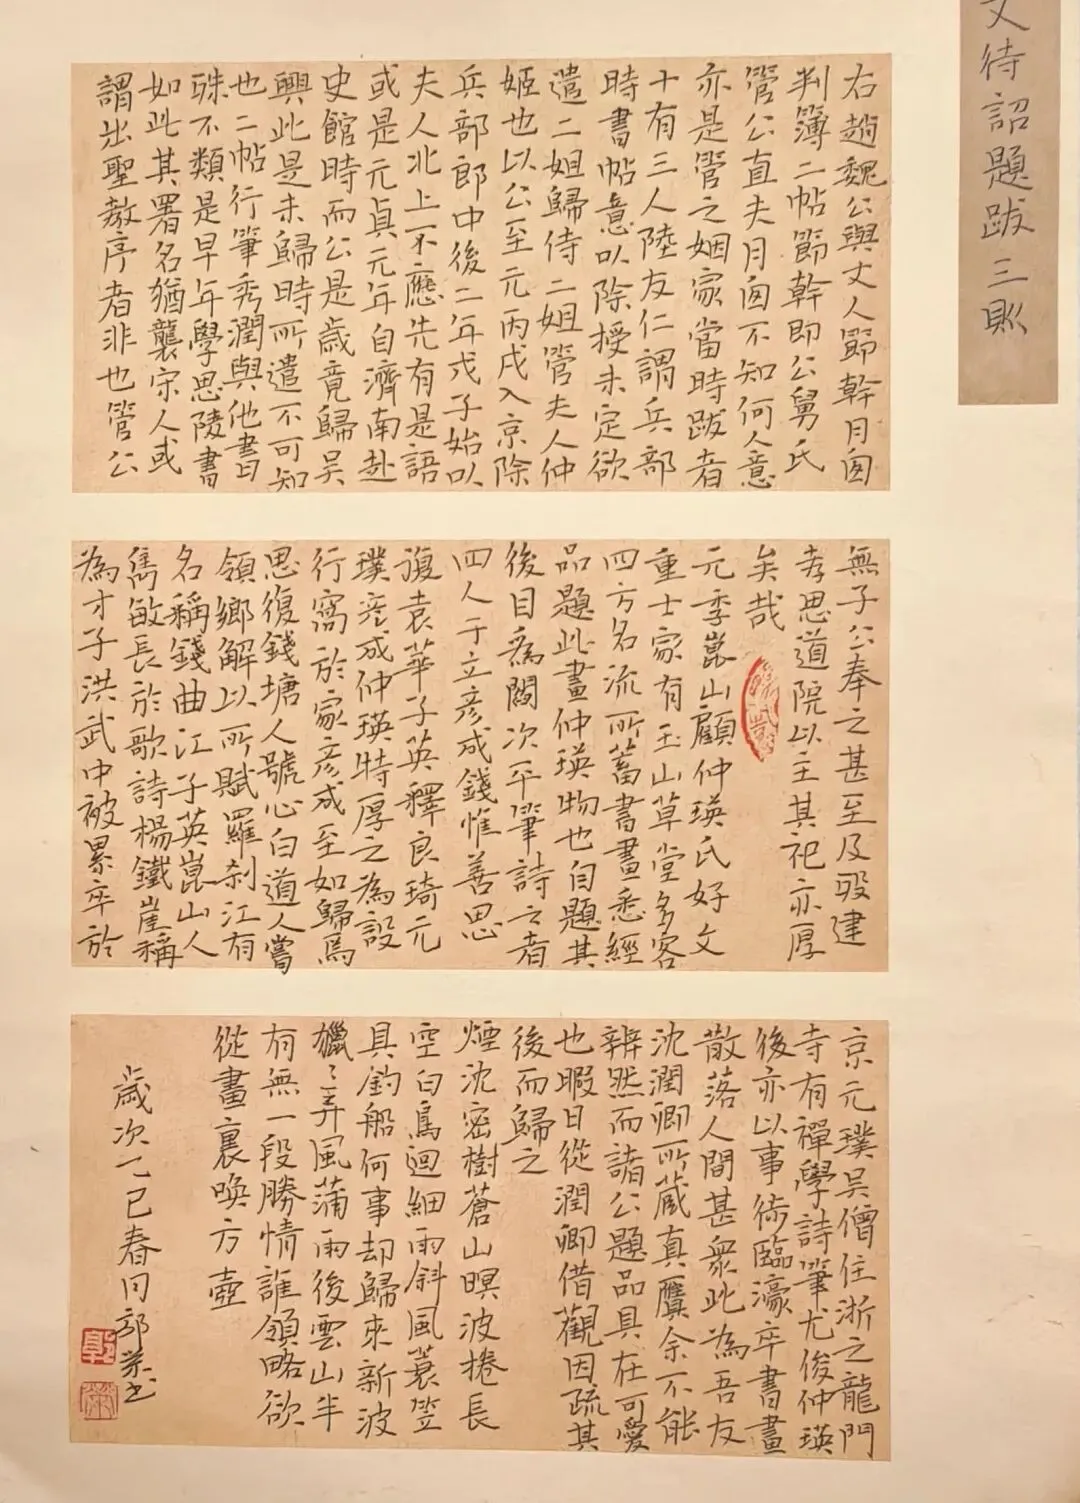 文待詔題跋三則
右趙魏公與丈人節幹月囪
判簿二帖節幹即公舅氏
管公直夫月囪不知何人意
亦是管之姻家當時跋者
十有三人陸友仁謂兵部
時書帖意以除授未定欲
遣二姐歸侍二姐管夫人仲
姬也以公至元丙戌入京除
兵部郎中後二年戊子始以
夫人北上不應先有是語
或是元貞元年自濟南赴
史館時而公是歲竟歸吳
興此是未歸時所遣不可知
也二帖行筆秀潤與他書
殊不類是早年學思陵書
如此其署名猶襲宋人或
謂出聖教序者非也管公
無子公奉之甚至及歿建
孝思道院以主其祀亦厚
矣哉
元季崑山顧仲瑛氏好文
重士家有玉山草堂多客
四方名流所蓄書畫悉經
品題此畫仲瑛物也自題其
後目為閻次平筆詩之者
四人于立彥成錢惟善思
復袁華子英釋良琦元
璞彥成仲瑛特厚之為設
行窩於家彥成至如歸焉
思復錢塘人號心白道人嘗
領鄉解以所賦羅刹江有
名稱錢曲江子英崑山人
雋敏長於歌詩楊鐵崖稱
為才子洪武中被累卒於
京元璞吳僧住浙之龍門
寺有禪學詩筆尤俊仲瑛
後亦以事徙臨濠卒書畫
散落人間甚眾此為吾友
沈潤卿所蔵真贗余不能
辨然而諸公題品具在可愛
也暇日從潤卿借觀因疏其
後而歸之
煙沈密樹蒼山暝波捲長
空白鳥迴細雨斜風蓑笠
具釣船何事却歸來新波
獵〻弄風蒲雨後雲山半
有無一段勝情誰領略欲
從畫裏喚方壺
歲次乙巳春月郭榮書